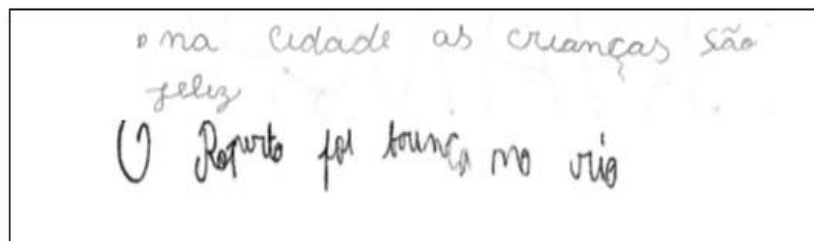 na cidade as crianças são
feliz
O Roperto foi brinca no rio